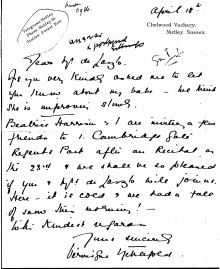 April 18th
Chelwood Vachery,
Nutley, Sussex.
answer
Dear Mr de Laszlo.
As you very kindly asked me to let
you know about my baby - we think
she is improving slowly.
Beatrice Harrison & I are inviting a few
friends to 1. Cambridge Gate
Regents Park after our Recital on
the 23rd & we shall be so pleased
if you & Mrs de Laszlo will join us
Here - it is cold & we had a fall
of snow this morning!
With kindest regards
Yours sincerely